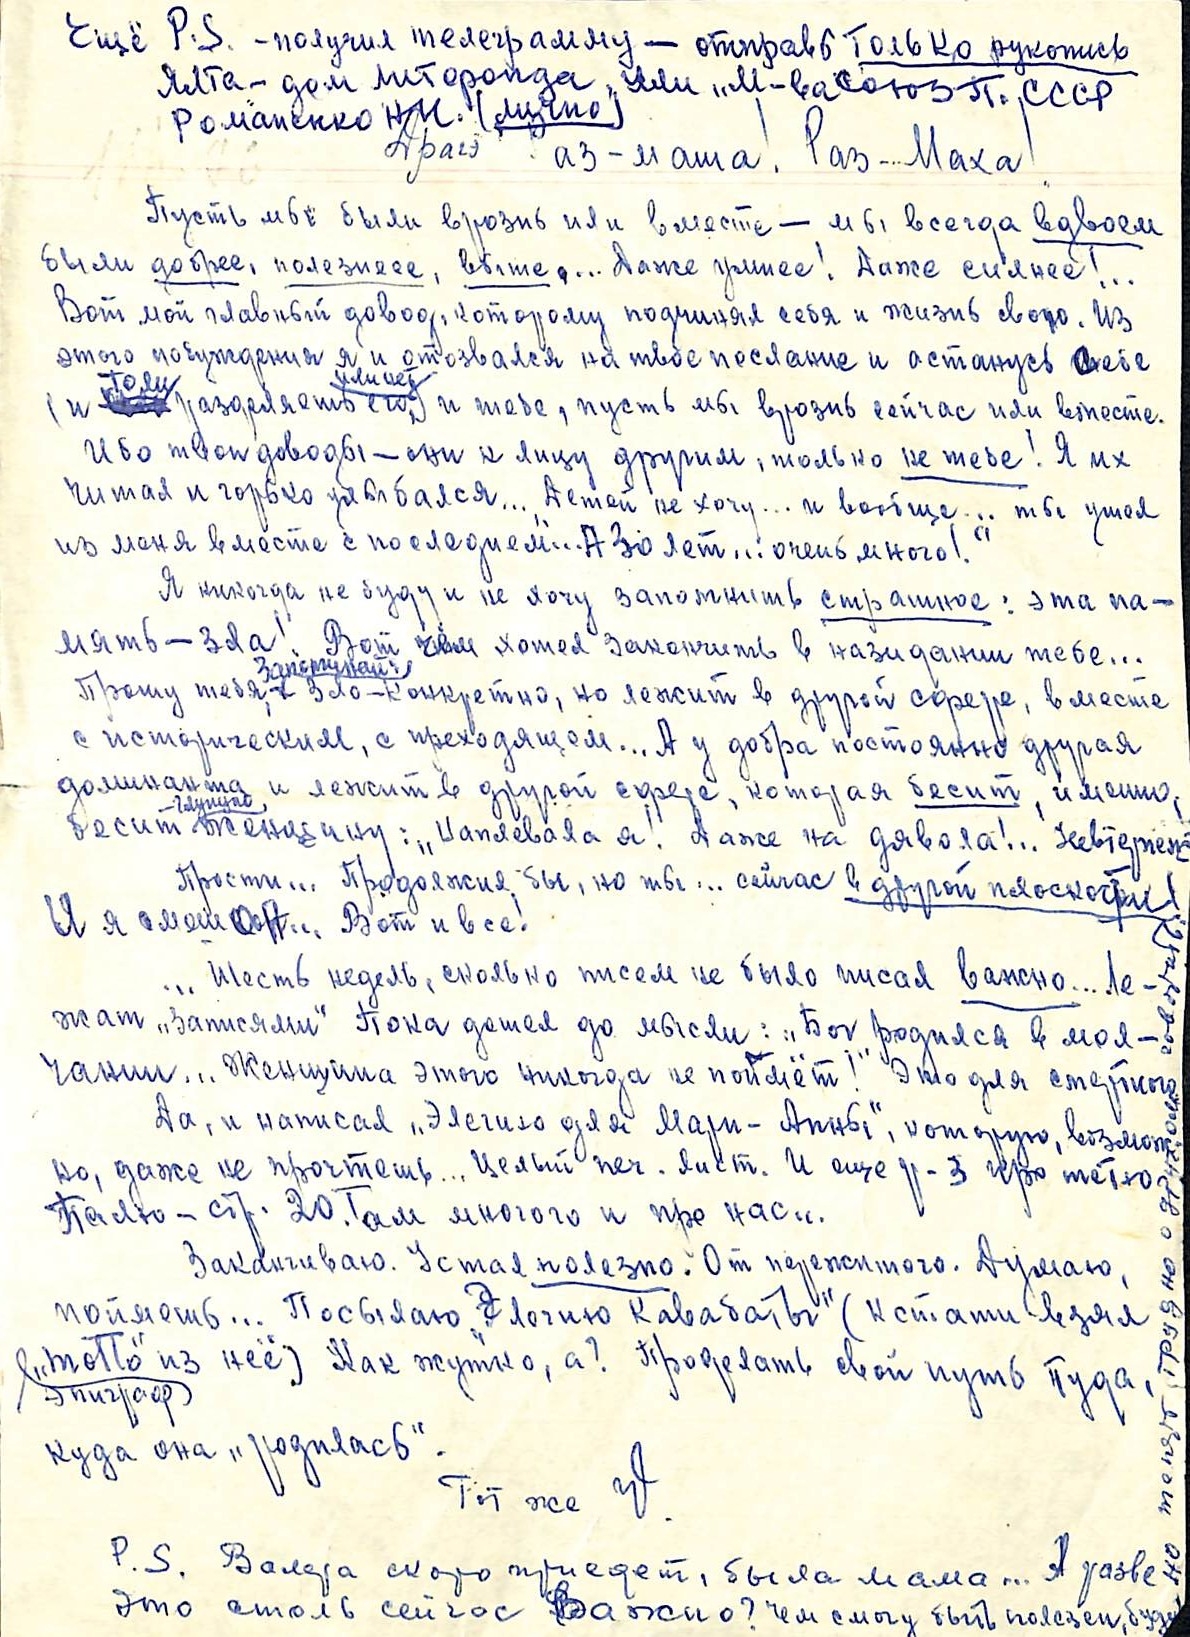 Ещё P.S. - получил телеграмму — отправь только рукопись
Ялта - дом литфонда, или "М-ва Союз П. СССР
Романенко Н.И. (лично)
Драгэ Раз-маша! Раз-Маха!
Пусть мы были врозь или вместе — мы всегда вдвоем
были добрее, полезнее, выше, ... Даже умнее! Даже сильнее!...
Вот мой главный довод, которому подчинял себя и жизнь свою. Из
этого побуждения я и отозвался на твое послание и останусь себе
(и то ли разделяешь его, или нет) и тебе, пусть мы врозь сейчас или вместе.
Ибо твои доводы — они к лицу другим, только не тебе! Я их
читал и горько улыбался... "Детей не хочу... и вообще... ты ушел
из меня вместе с последней"... А 30 лет... очень много!"
Я никогда не буду и не хочу запомнить страшное: эта па-
мять — зла! Вот чем хотел закончить в назидании тебе...
Прошу тебя, запоминай: Зло - конкретно, но лежит в другой сфере, вместе
с историческим, с преходящем... А у добра постоянно другая
доминанта и лежит в другой сфере, которая бесит, именно,
бесит - глупую женщину: "Наплевала я! Даже на дявола!... Невтерпеж
Прости... Продолжил бы, но ты... сейчас в другой плоскости!
И я смешон... Вот и все!
... Шесть недель, сколько писем не было писал важно... Ле-
жат "Записями" Пока дошел до мысли: "Бог родился в мол-
чании... Женщина этого никогда не поймёт!" Это для смертного
Да, и написал "Элегию для Мари-Анны", которую, возмож-
но, даже не прочтешь... Целый печ. лист. И еще р-з про тётю
Палю - стр. 20. Там многого и про нас...
Заканчиваю. Устал полезно. От пережитого. Думаю,
поймешь... Посылаю "Элегию Кавабаты" (кстати взял
"мотто" из неё) Как жутко, а? Проделать свой путь туда,
(эпиграф)
куда она "родилась".
Тот же
P.S. Валера скоро приедет, была мама... А разве
это столь сейчас важно? Чем смогу быть полезен, буду
но понять трудно о духовном говорить.